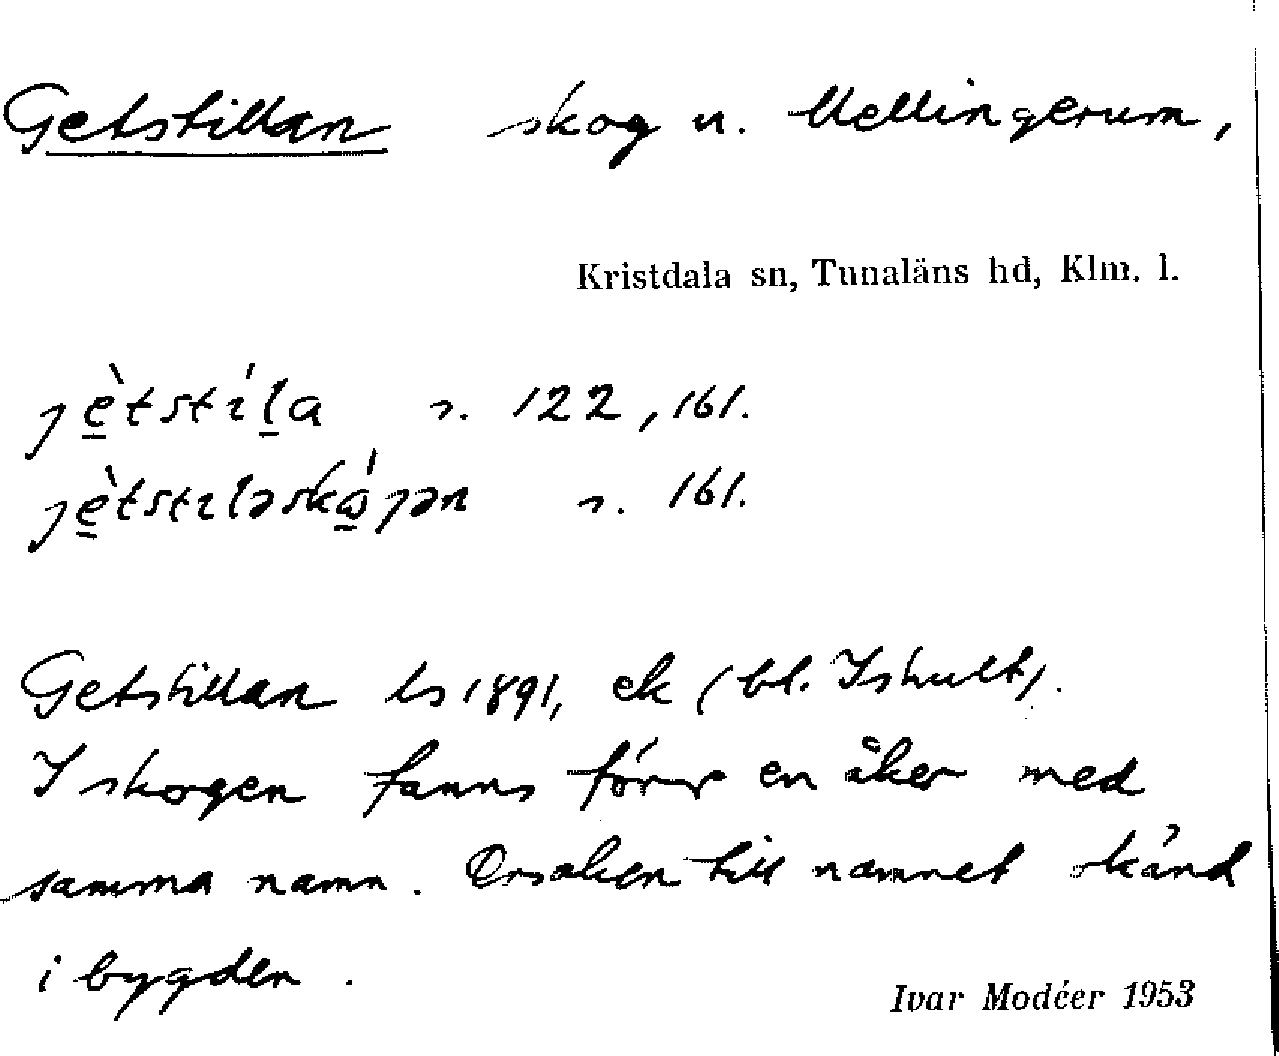 Getstillan skog u. Mellingerum,
Kristdala sn, Tunaläns hd, Klm. l.
jè̱tstɪ́ḻa s. 122, 161.
jè̱tstɪləskǻ̱jən s. 161.
Getstillan ls 1891, ek (bl. Ishult).
I skogen fanns förr en åker med
samma namn. Orsaken till namnet okänd
i bygden.
Ivar Modéer 1953